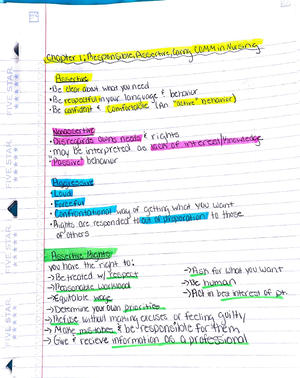 Chapter 1; Responsible, Assertive, Caring COMM in Nursing
Assertive
• Be clear about what you need
• Be respectful in your language & behavior
• Be confident & comfortable (An "active" behavior)
Nonassertive
• Disregards owns needs & rights
• may be interpreted as lack of interest/knowledge
• "Passive" behavior
Aggressive
• Loud
• Forceful
• Confrontational way of getting what you want
• Rights are responded to out of preparation to those
of others
Assertive Rights
you have the right to:
→ Be treated w/ respect
→ Reasonable workload
→ Equitable wage
→ Determine your own priorities
→ Refuse without making excuses or feeling guilty
→ Make mistakes & be responsible for them
→ Give & recieve information as a professional
→ Ask for what you want
→ Be human
→ Act in best interest of pt.
FIVE STAR
FIVE STAR
FIVE STAR
FIVE STAR